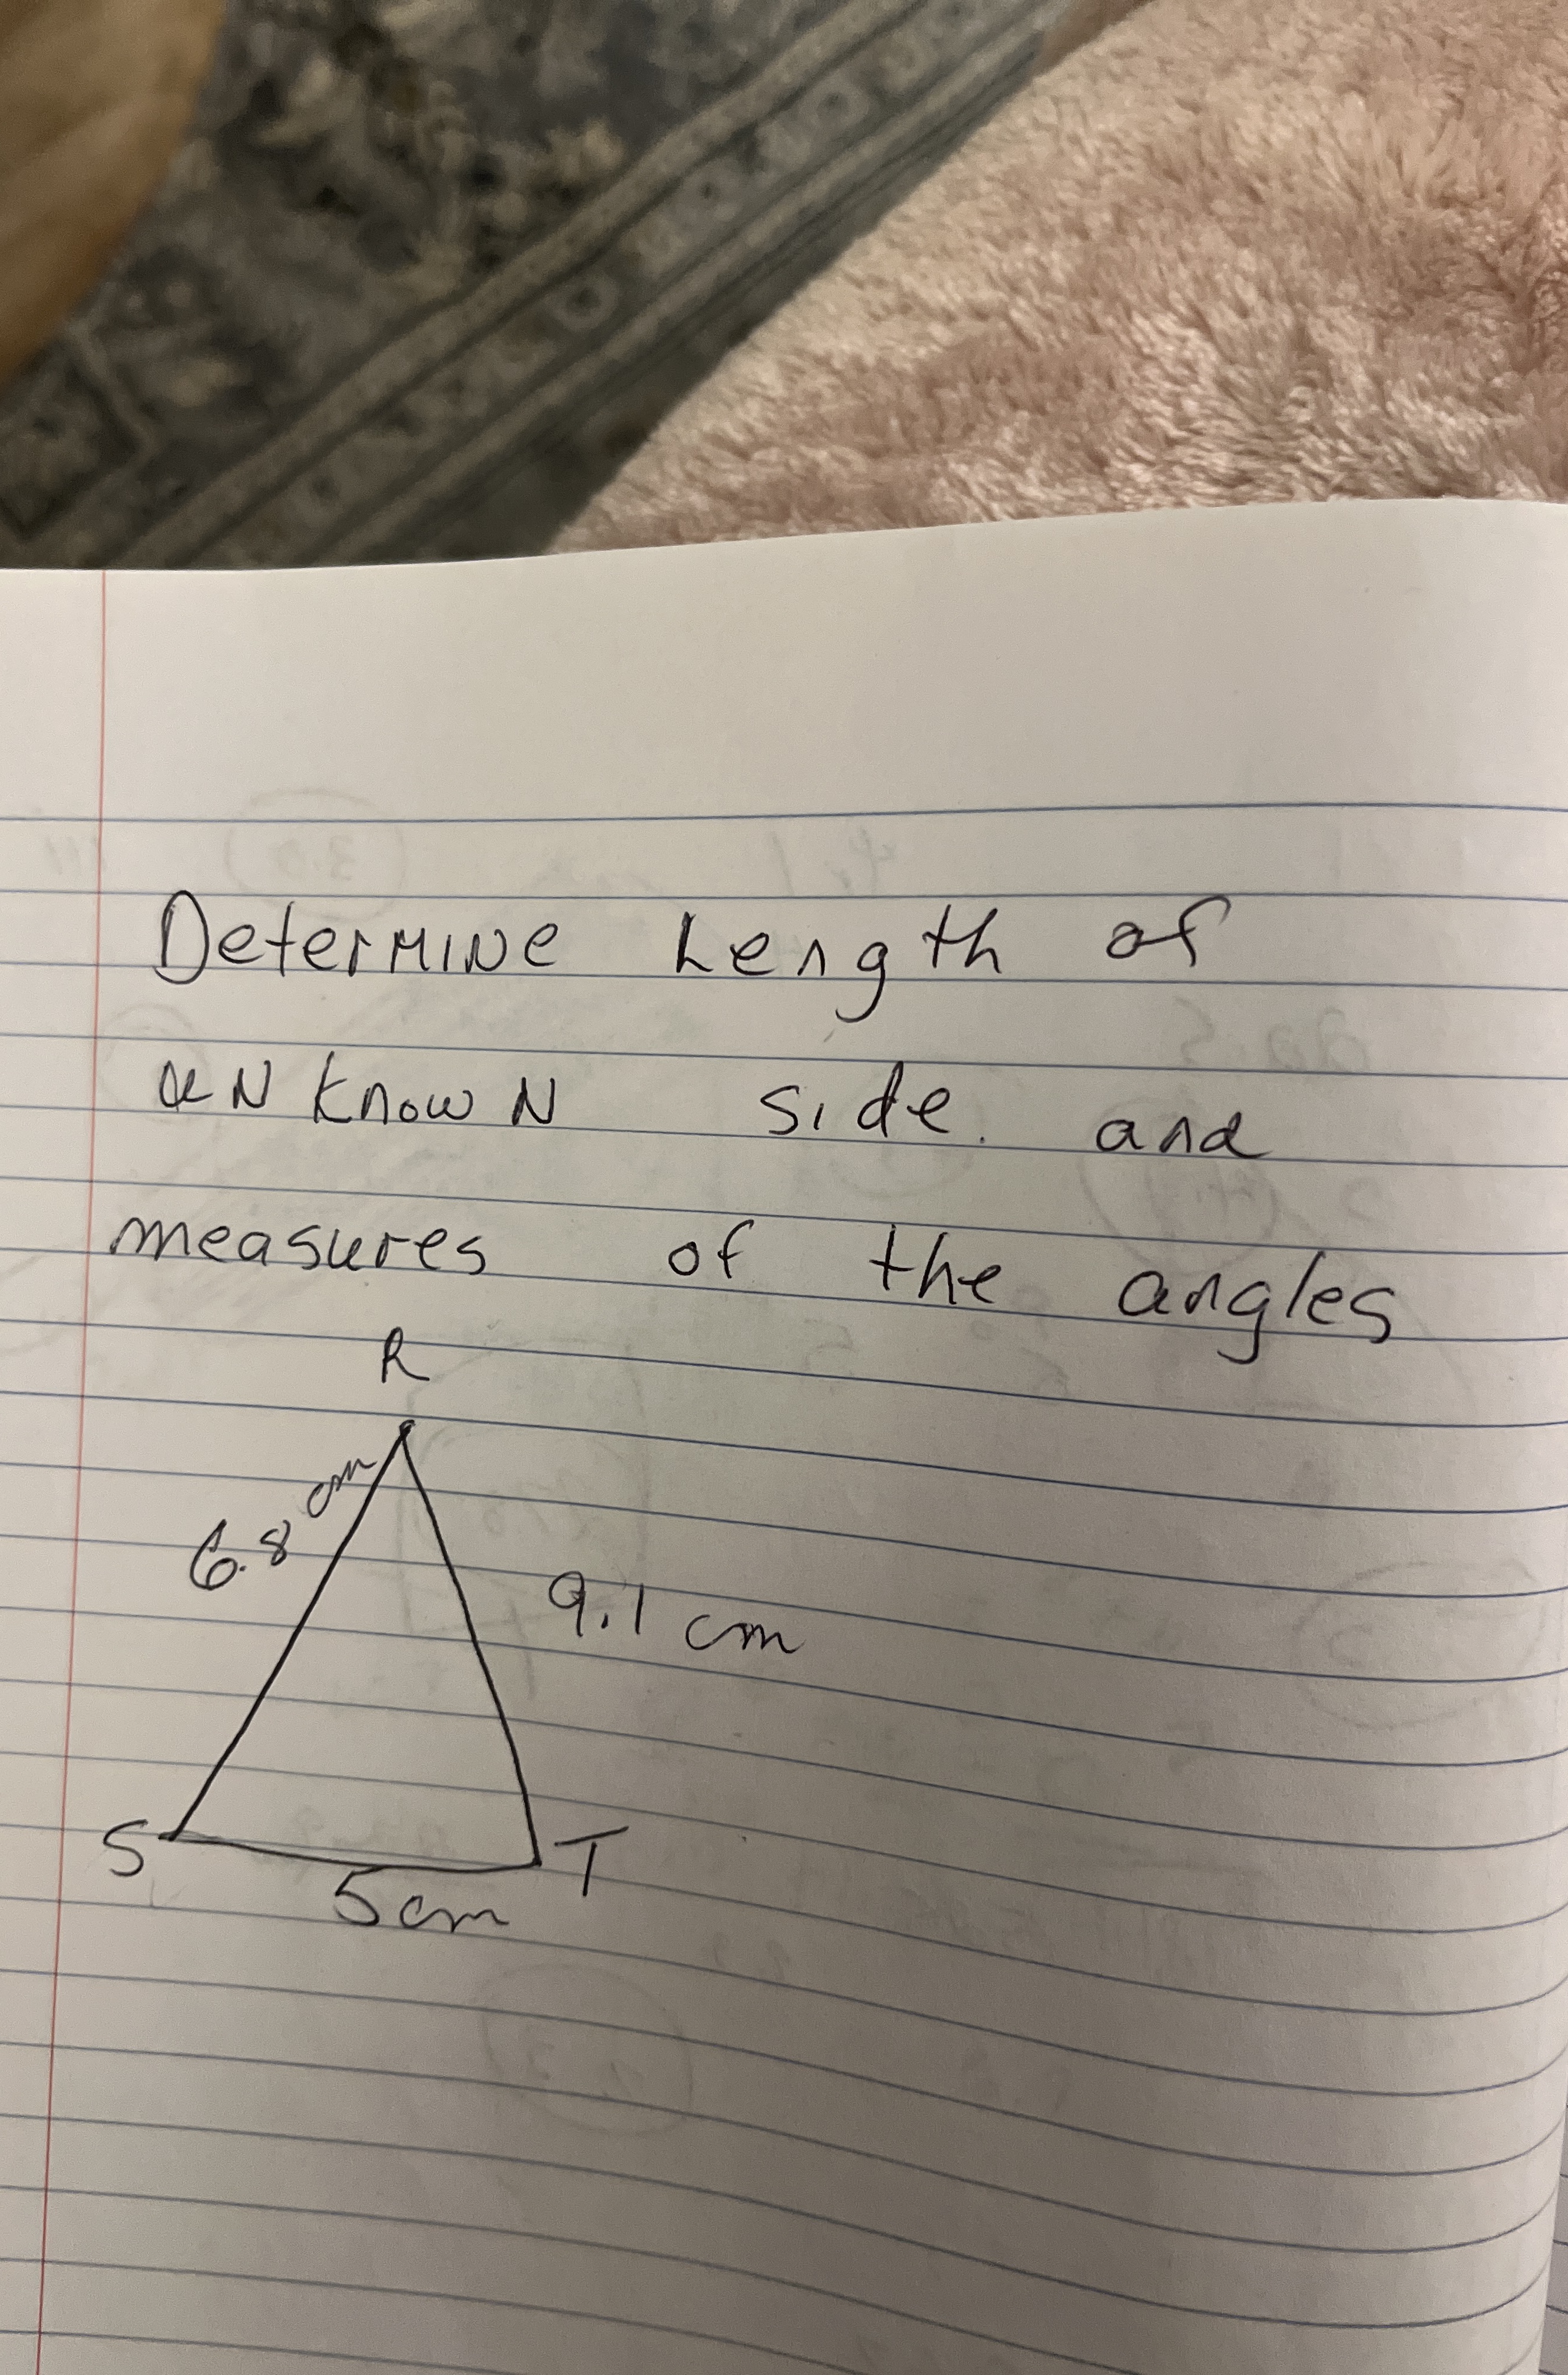 Determine Length of
unknown side. and
measures of the angles
R
6.8 cm
9.1 cm
S
T
5cm